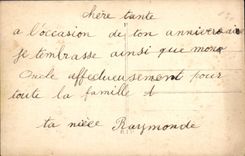 chère tante
a l'occasion de ton annivers
je t'embrasse ainsi que mon
Oncle affectueusement pour
toute la famille
ta nièce Raymonde